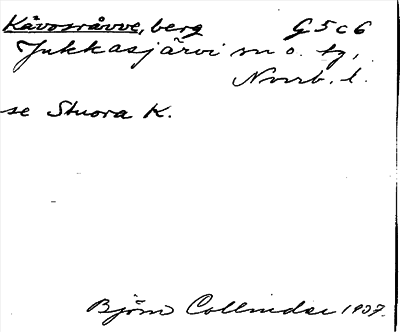 Kåvosråvve, berg G5c6
Jukkasjärvi sn o. tg,
Norrb. l.
se Stuora K.
Björn Collinder 1907.